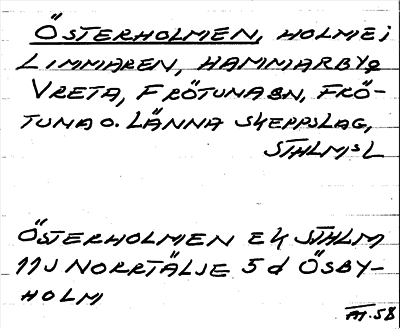 ÖSTERHOLMEN, HOLME i
LIMMAREN, HAMMARBY o
VRETA, FRÖTUNA SN, FRÖ-
TUNA O. LÄNNA SKEPPSLAG,
STHLMS L
ÖSTERHOLMEN EK STHLM
11J NORRTÄLJE 5 d ÖSBY-
HOLM
58